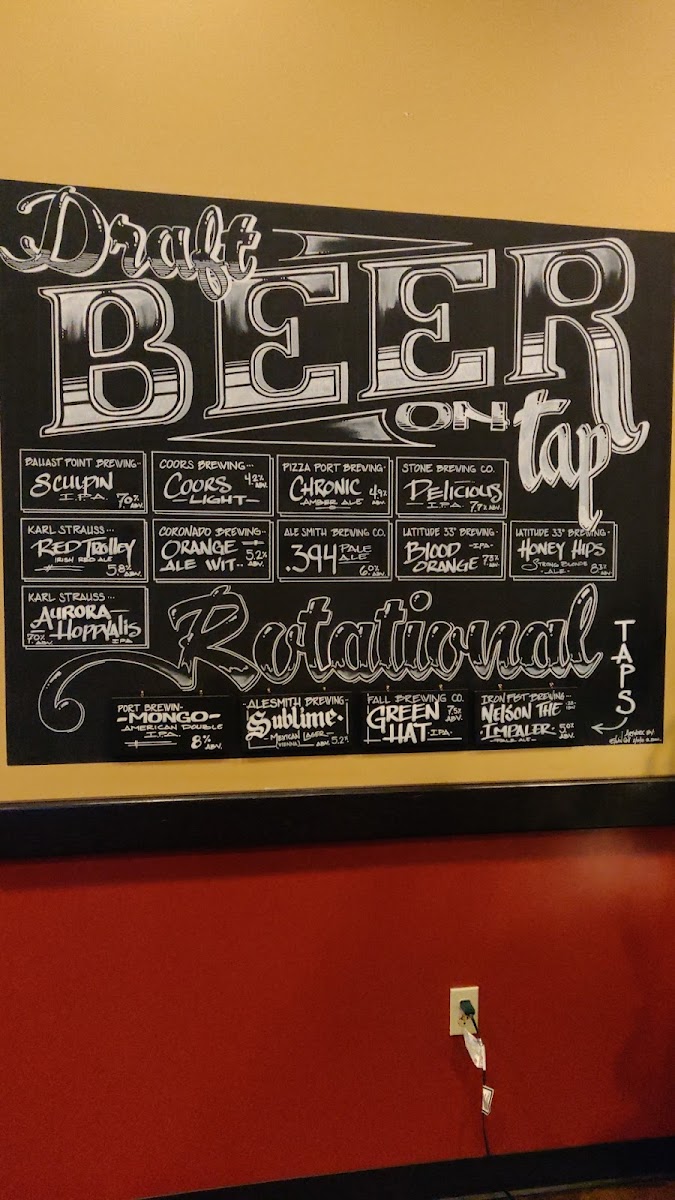 Draft
BEER
ON tap
BALLAST POINT BREWING
SCULPIN
I.P.A. 7.0% ABV.
COORS BREWING...
COORS 4.2% ABV.
LIGHT
PIZZA PORT BREWING
CHRONIC 4.9% ABV.
AMBER ALE
STONE BREWING CO.
DELICIOUS
I.P.A. 7.7% ABV.
KARL STRAUSS...
RED TROLLEY
IRISH RED ALE
5.8% ABV.
CORONADO BREWING..
ORANGE
ALE WIT.. 5.2% ABV.
ALESMITH BREWING CO.
.394 PALE ALE
6.0% ABV.
LATITUDE 33° BREWING
BLOOD -IPA-
ORANGE 7.3% ABV.
LATITUDE 33° BREWING-
HONEY HIPS
STRONG BLONDE
-ALE- 8.3% ABV.
KARL STRAUSS...
AURORA
HOPPYALIS
7.0% ABV. IPA
Rotational
TAPS
PORT BREWIN-
-MONGO-
AMERICAN DOUBLE
I.P.A. 8% ABV.
ALESMITH BREWING
Sublime
MEXICAN LAGER
(VIENNA) ABV. 5.2%
FALL BREWING CO.
GREEN 7.5% ABV.
HAT .IPA.
IRON FIST BREWING...
NELSON THE
IMPALER
-PALE ALE-